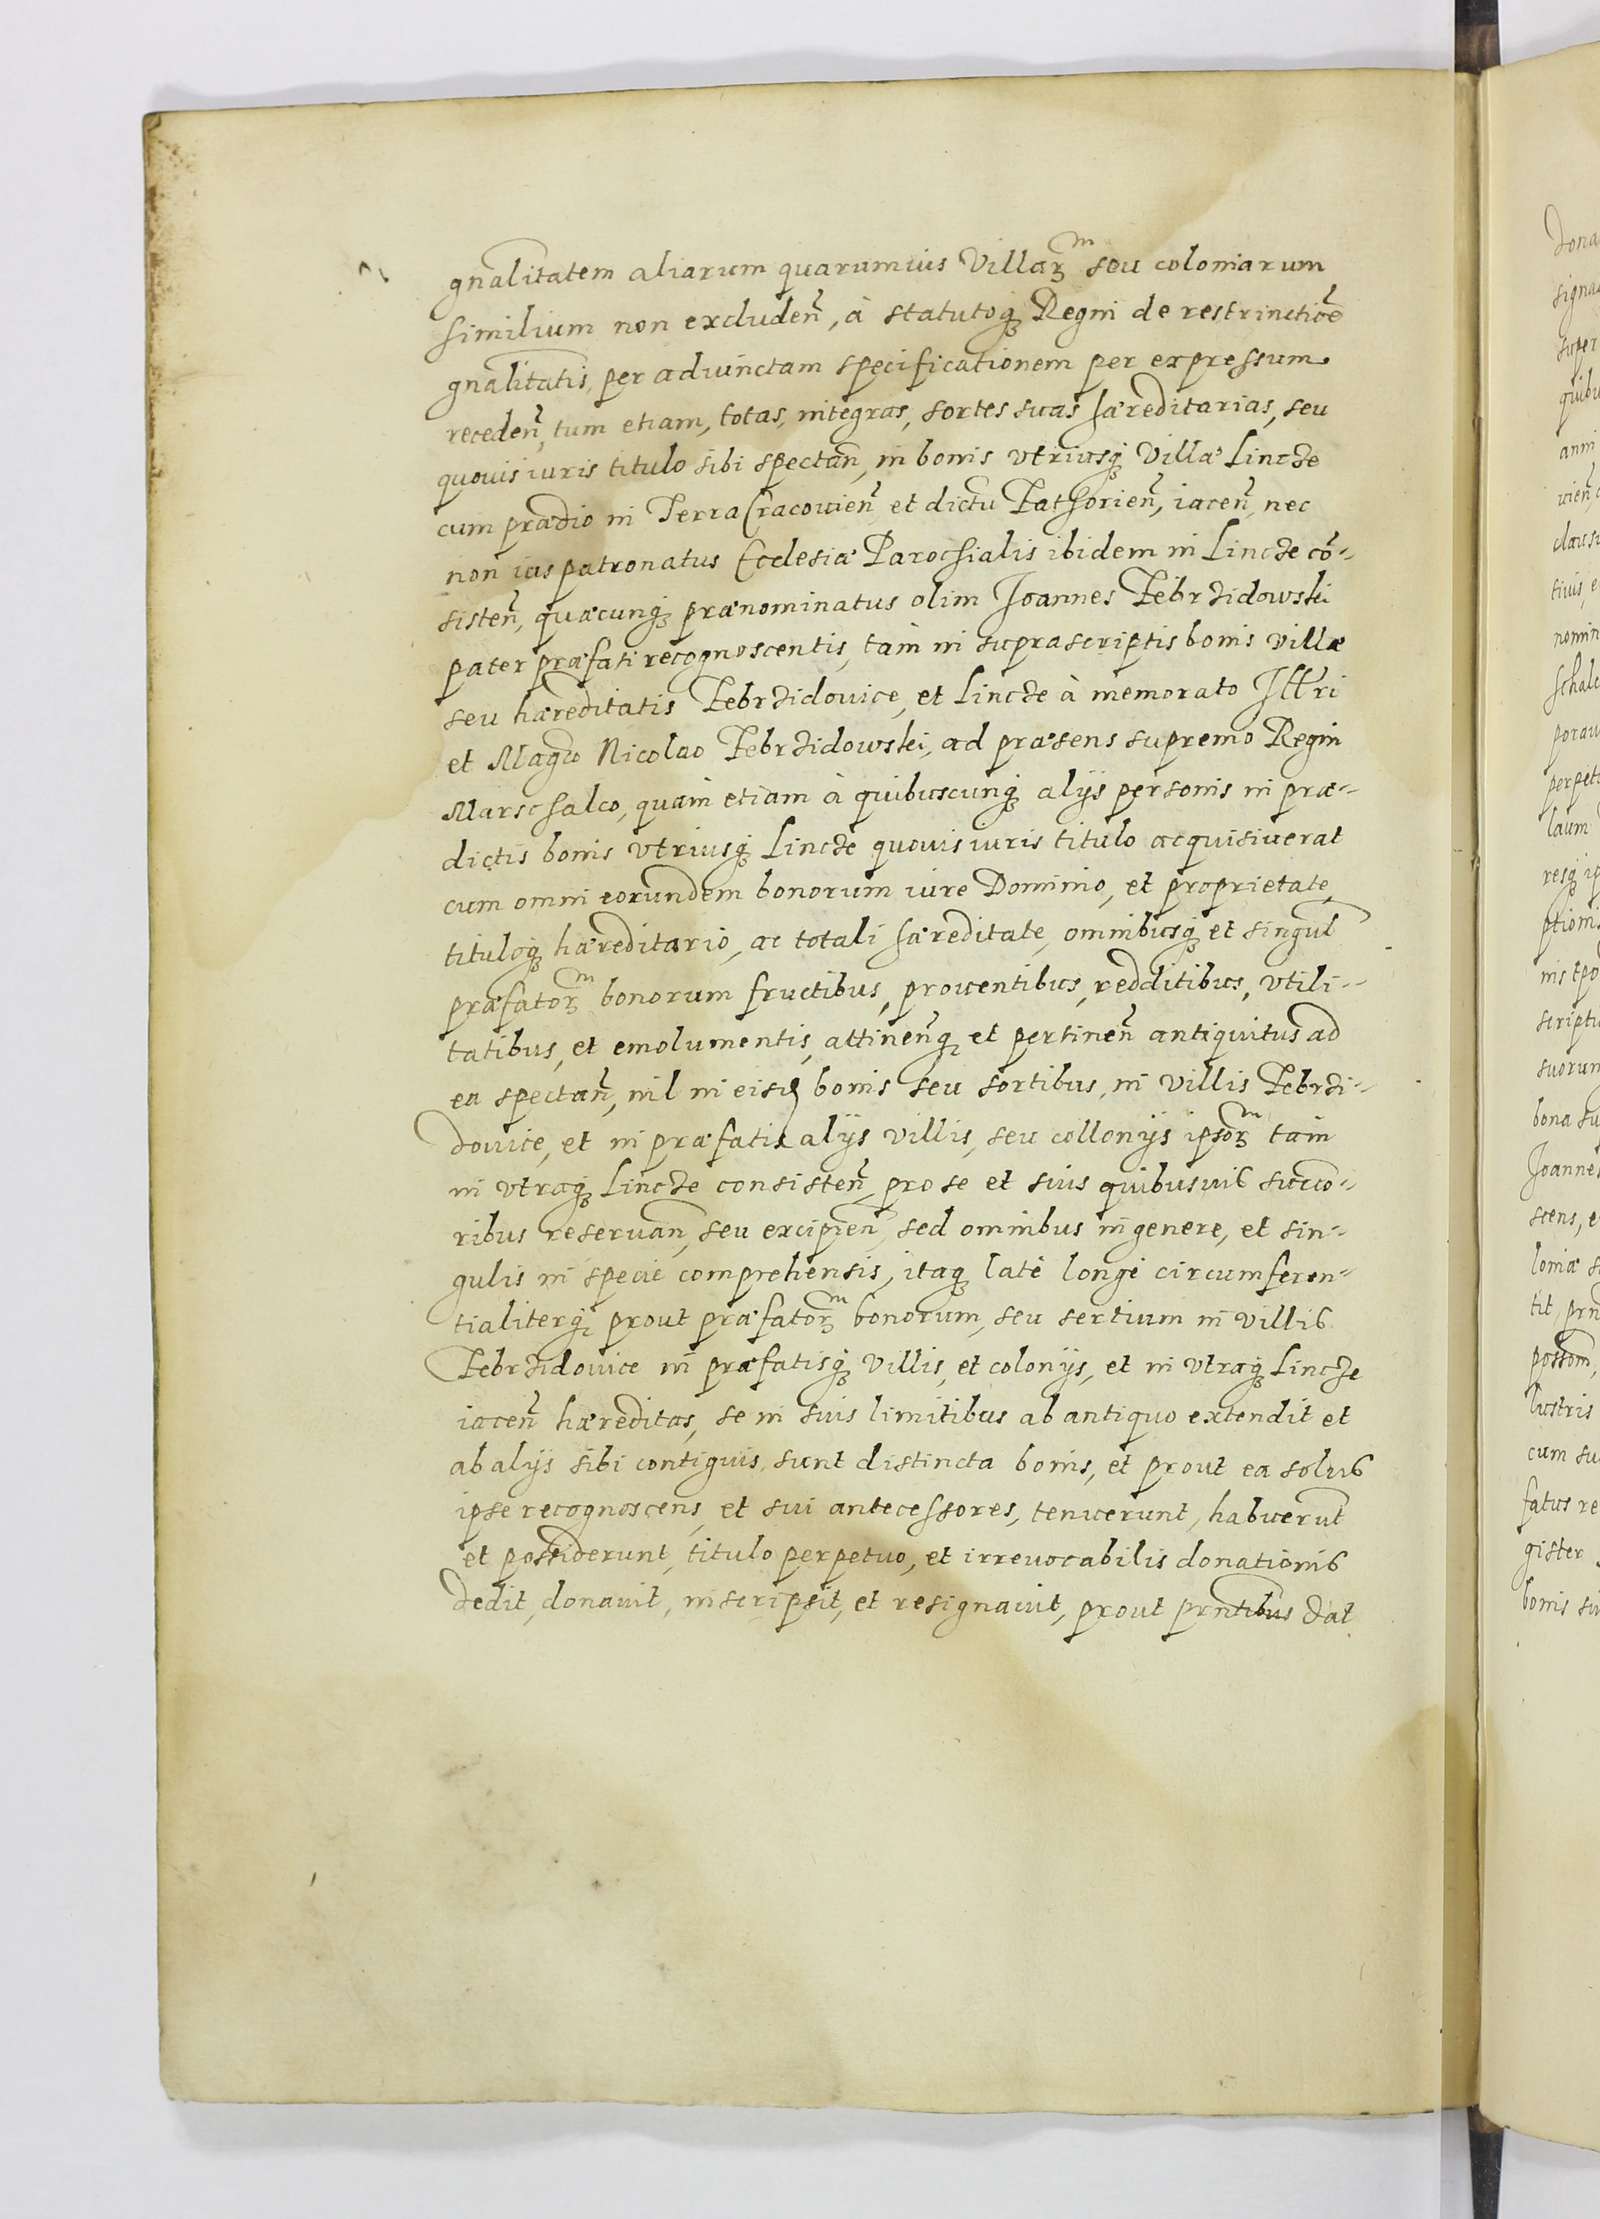 gnalitatem aliarum quarumuis Villarm seu coloniarum
similium non excluden̄, à statutoq₃ Regni de restrinctioē
gnalitatis, per adiunctam specificationem per expressum
receden̄, tum etiam, totas, integras, sortes suas hæreditarias, seu
quouis iuris titulo sibi spectan̄, in bonis vtriusq₃ Villæ Lincze
cum prædio in Terra Cracouien̄ et dictu Zathorien̄, iacen̄, nec
non ius patronatus Ecclesiæ Parochialis ibidem in Lincze cō-
sisten̄, quæcunq₃ prænominatus olim Joannes Zebrzidowski
pater præfati recognoscentis, tam in suprascriptis bonis villæ
seu hæreditatis Zebrzidouice, et Lincze à memorato Jllri
et Magco Nicolao Zebrzidowski, ad præsens supremo Regni
Marschalco, quàm etiam à quibuscunq₃ alijs personis in præ-
dictis bonis vtriusq₃ Lincze quouis iuris titulo acquisiuerat
cum omni eorundem bonorum iure Dominio, et proprietate,
tituloq₃ hæreditario, ac totali hæreditate, omnibusq₃ et singul
præfatorm bonorum fructibus, prouentibus, redditibus, vtili-
tatibus, et emolumentis, attinen̄q₃ et pertinen̄ antiquitus ad
ea spectan̄, nil in eisd bonis seu sortibus, in villis Zebrzi-
douice, et in præfatis alijs villis, seu collonijs ipsorm tam
in vtraq₃ Lincze consisten̄ pro se et suis quibusuis succo-
ribus reseruan̄, seu excipien̄ sed omnibus in genere, et sin-
gulis in specie comprehensis, itaq₃ latè longè circumferen-
tialiterq₃ prout præfatorm bonorum, seu sertium in villis
Zebrzidouice in præfatisq₃ villis, et colonijs, et in vtraq₃ Lincze
iacen̄ hæreditas, se in suis limitibus ab antiquo extendit et
ab alijs sibi contiguis sunt distincta bonis, et prout ea solus
ipse recognoscens, et sui antecessores, tenuerunt, habuerūt
et possiderunt, titulo perpetuo, et irreuocabilis donationis
dedit, donauit, inscripsit, et resignauit, prout prntibus dat